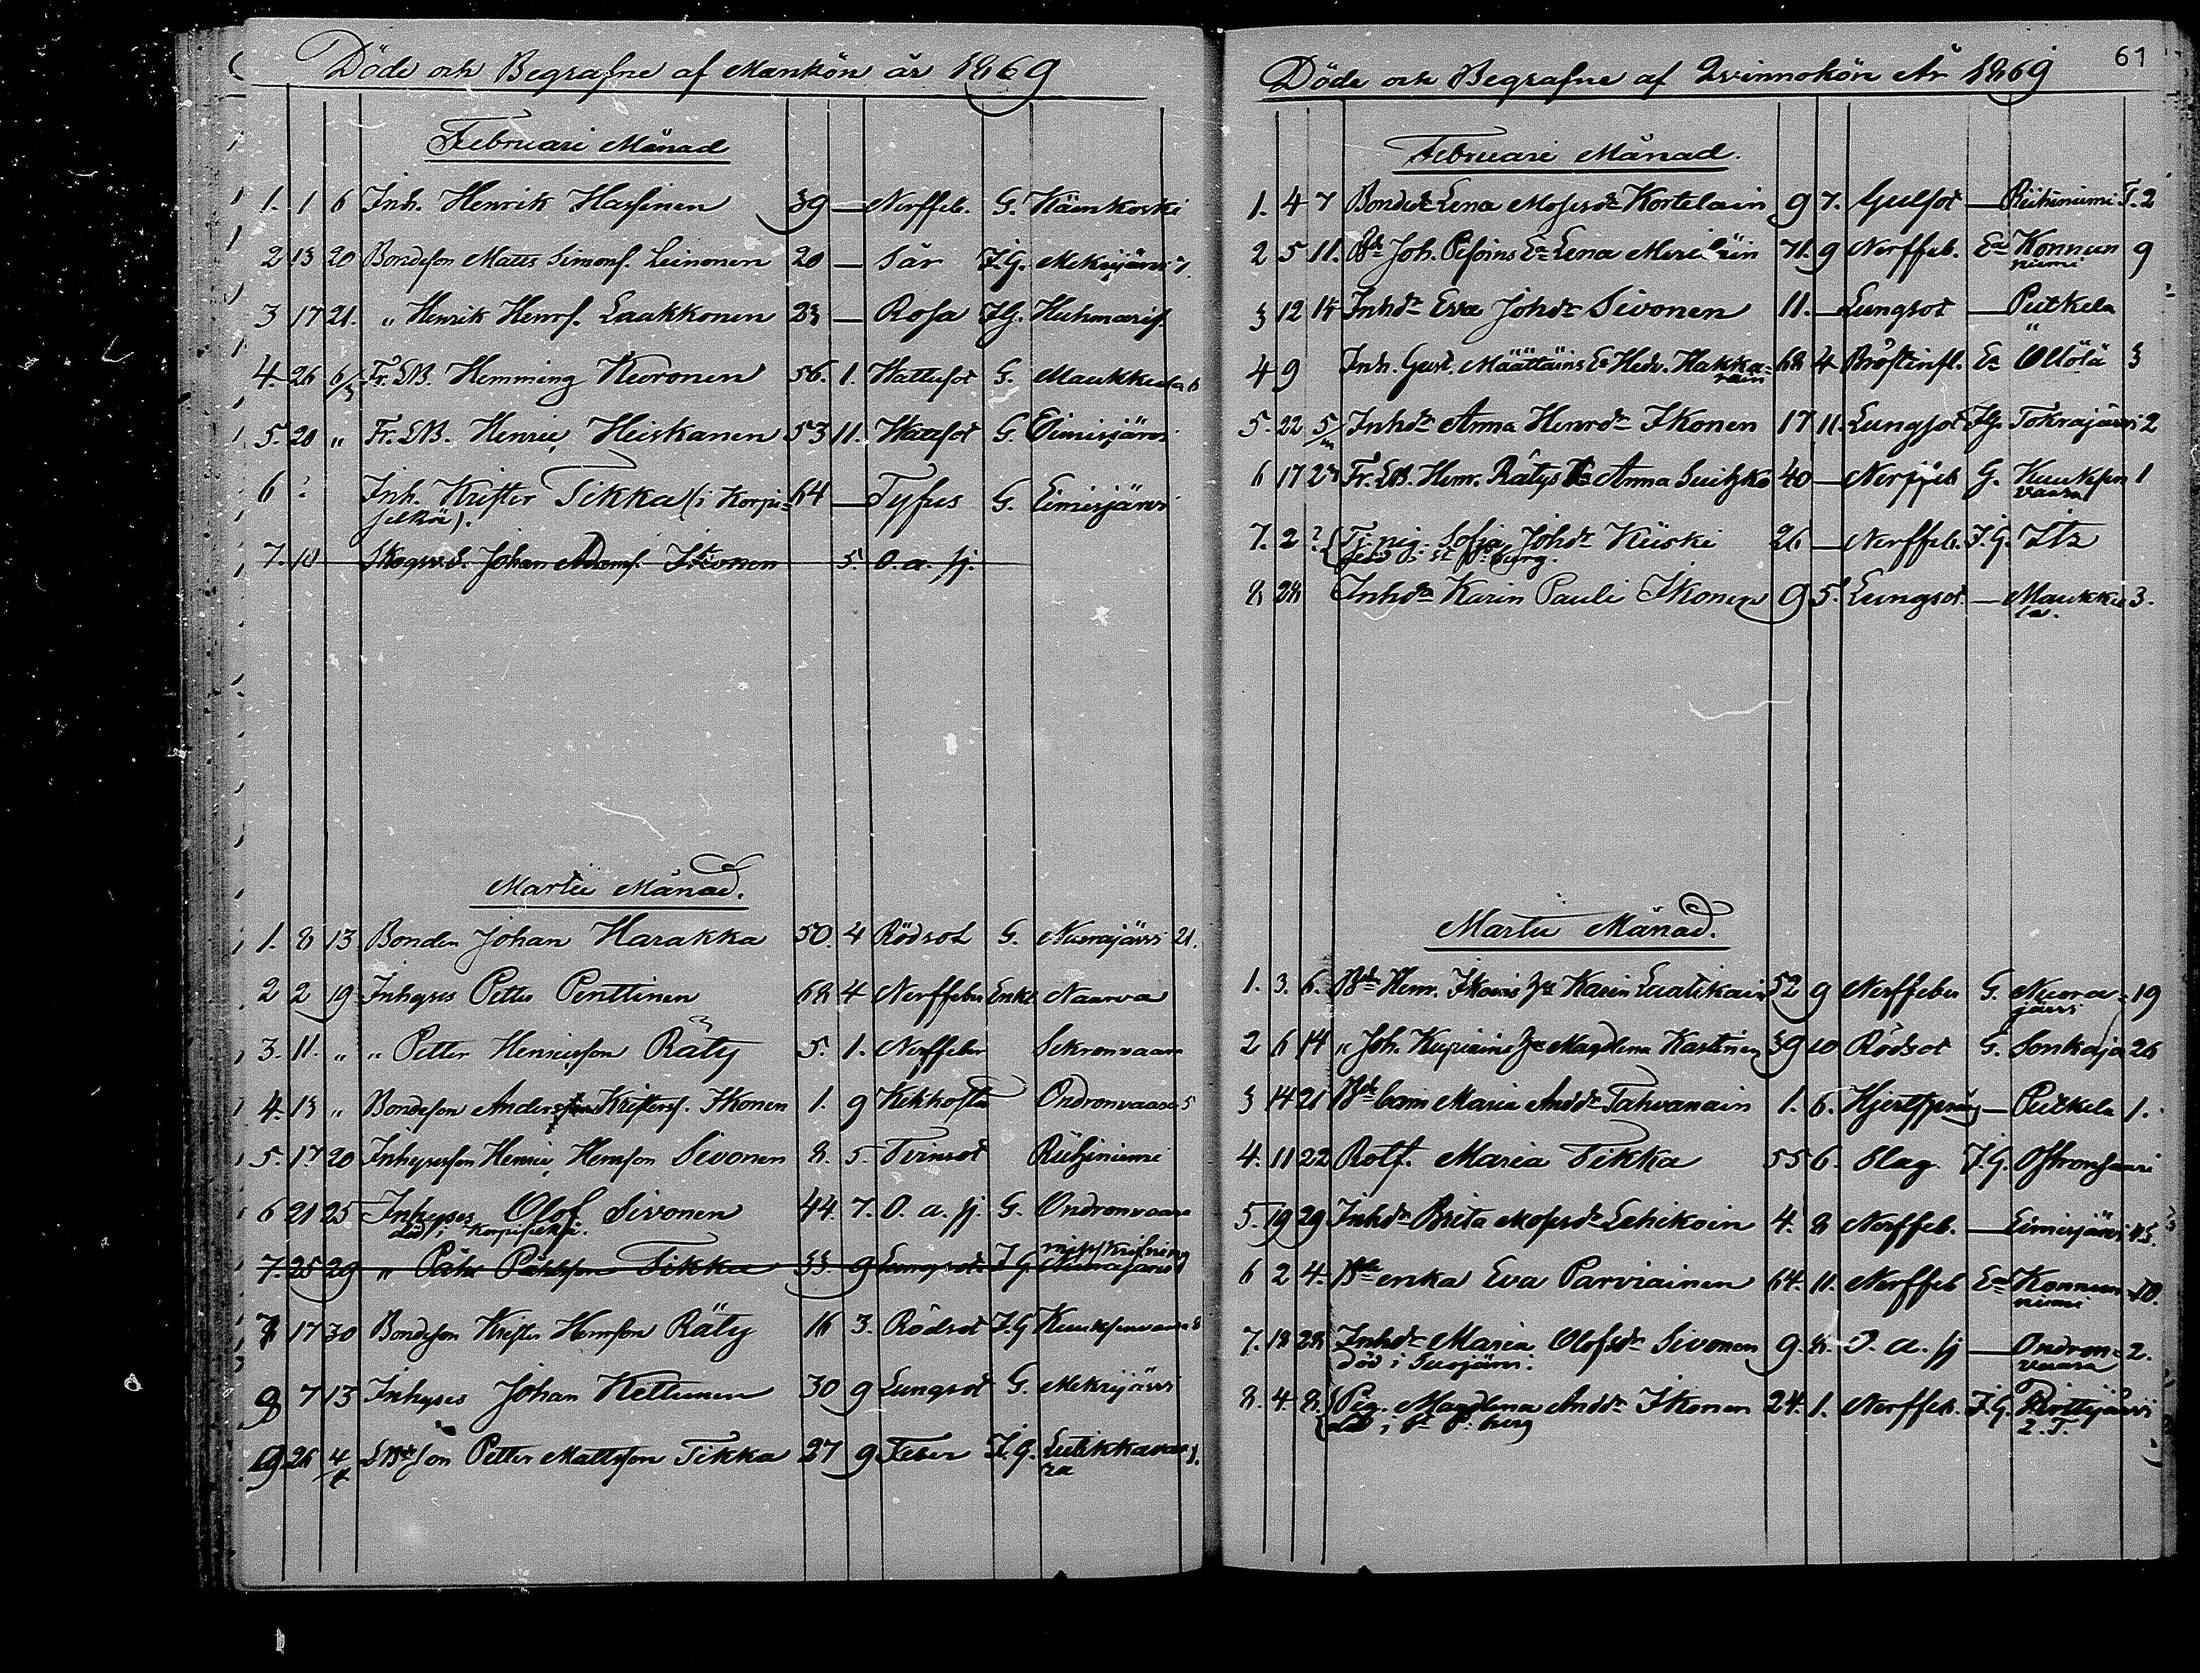 Döde och Begrafne af Mankön år 1869
Februari Månad
1. 1 6 Inh. Henrik Hassinen 39 — Nerffeb. G. Hämkoski
2 13 20 Bondeson Matts Simonss. Leinonen 20 — Sår I.G. Mekrijärvi 7.
3 17 21. " Henrik Henrss. Laakkonen 23 — Rosa I.G. Huhmaris.
4. 26 6/3 Fr. LB. Hemming Kuronen 56. 1. Wattusot G. Maukkula
5. 20 " Fr. LB. Henric Heiskanen 53 11. Wattusot G. Eimisjärvi
6 ? Inh. Krister Tikka (i Korpi= 64 — Tyfus G. Eimisjärvi
selkä).
7. 10 Skogsv. S. Johan Adamss. Ikonen 5. O. a. sj.
Martii Månad.
1. 8 13 Bonden Johan Harakka 50. 4 Rödsot G. Nuorajärvi 21.
2 2 19 Inhyses Petter Penttinen 68 4 Nerffeber Enkl Naarva
3. 11. " " Petter Henricsson Räty 5. 1. Nerffeber Sekronvaara
4. 13 " Bondeson Anders Kristerss. Ikonen 1. 9 Kikhosta Ondronvaara 5
5. 17. 20 Inhysesson Henric Hemsson Sivonen 8. 5. Tvinsot Riihiniemi
6 21 25 Inhyses Olof Sivonen 44. 7. O. a. sj. G. Ondronvaara
död i Korpiselkä.
7. 25 29 " Påhl Påhlsson Tikka 33 9 Lungsot I G
8 17 30 Bondeson Krister Hemsson Räty 16 3. Rödsot I.G Kuuksenvaara
8 7 13 Inhyses Johan Kettunen 30 9 Lungsot G. Mekrijärvi
9 26 4/4 LBdeson Petter Mattsson Tikka 27 9 Feber I.G. Lutikkavaa
ra
61
Döde och Begrafne af Qvinnokön År 1869
Februari Månad.
1. 4 7 Bondedr Lena Mosesdr Kortelain 9 7. Gulsot — Riihiniemi T. 2
2 5 11. Bde Joh. Pesoins Ea Lena Meriläin 71. 9 Nerffeb. Ea Konnun 9
niemi
3 12 14 Inhdr Eva Johdr Sivonen 11. — Lungsot — Putkela
4 9 Inh. Gust. Määttäins Ea Hedv. Hakka= 68 4 Bröstinfl. Ea Öllölä 3
rain
5. 22 5/m Inhdr Anna Henrdr Ikonen 17 11. Lungsot I.G. Tokrajärvi 2
6 17 23 Fr. LB. Henr. Rätys Anna Suitzko 40 — Nerffeb G. Kuuksen 1
vaara
7. 2 ? Sofia Johdr Kiiski 26 — Nerffeb. I.G. Itz
död i St P:burg.
8 28 Inhdr Karin Pauli Ikonen 9 5. Lungsot. — Maukku 3.
la.
Martii Månad.
1. 3. 6. Bde Henr. Ikoins Karin Luatikain 52 9 Nerffeber G. Nuora= 19
järvi
2 6 14 " Joh. Kupiains Magdlena Kastinen 39 10 Rödsot G. Sonkaja 26
3 14 21 Bde barn Maria Anddr Tahvanain 1. 6. Hjertsprång — Putkela 1.
4. 11 22 Rotf. Maria Tikka 55 6. Slag. I.G. Oskronsaari
5. 19 29 Inhdr Brita Mosesdr Lehikoin 4. 8 Nerffeb. — Eimisjärvi
6 2 4. Bde enka Eva Parviainen 64. 11. Nerffeb Ea Konnun= 10.
niemi
7. 18 28 Inhdr Maria Olofsdr Sivonen 9. 8. O. a. sj — Ondron= 2.
död i Suojärvi. vaara
8. 4 8. Pig. Magdlena Anddr Ikonen 24. 1. Nerffeb. I.G. järvi
död i St P: burg 2. T.